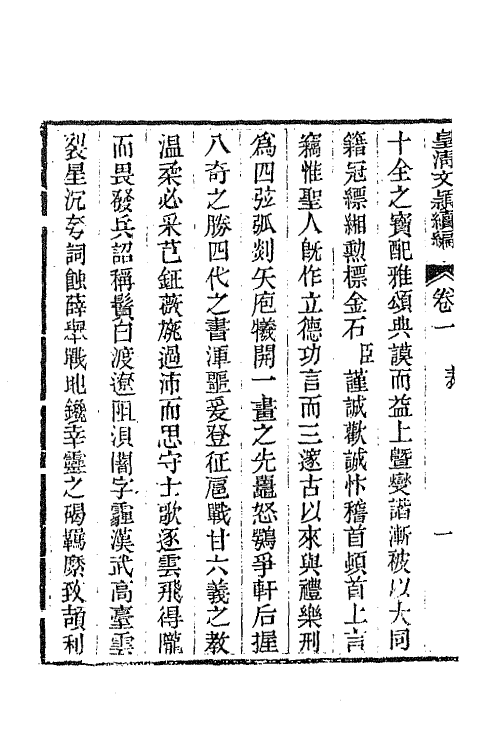 皇清文穎續編 卷一 表 一
十全之寶配雅頌典謨而益上暨燮諧漸被以大同
籍冠縹緗勲標金石臣謹誠歡誠忭稽首頓首上言
竊惟聖人旣作立德功言而三邃古以來與禮樂刑
爲四弦弧剡矢庖犧開一畫之先鼉怒鶚爭軒后握
八奇之勝四代之書渾噩爰登征扈戰甘六義之教
温柔必采芑鉦薇旐過沛而思守士歌逐雲飛得隴
而畏發兵詔稱鬚白渡遼阻浿闇字霾漢武高臺雲
裂星沉夸詞蝕薛舉戰地鐫幸靈之碣羈縻致頡利